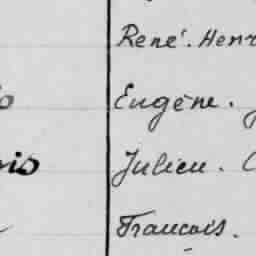 René. Henr
Eugène.
Julien.
François.